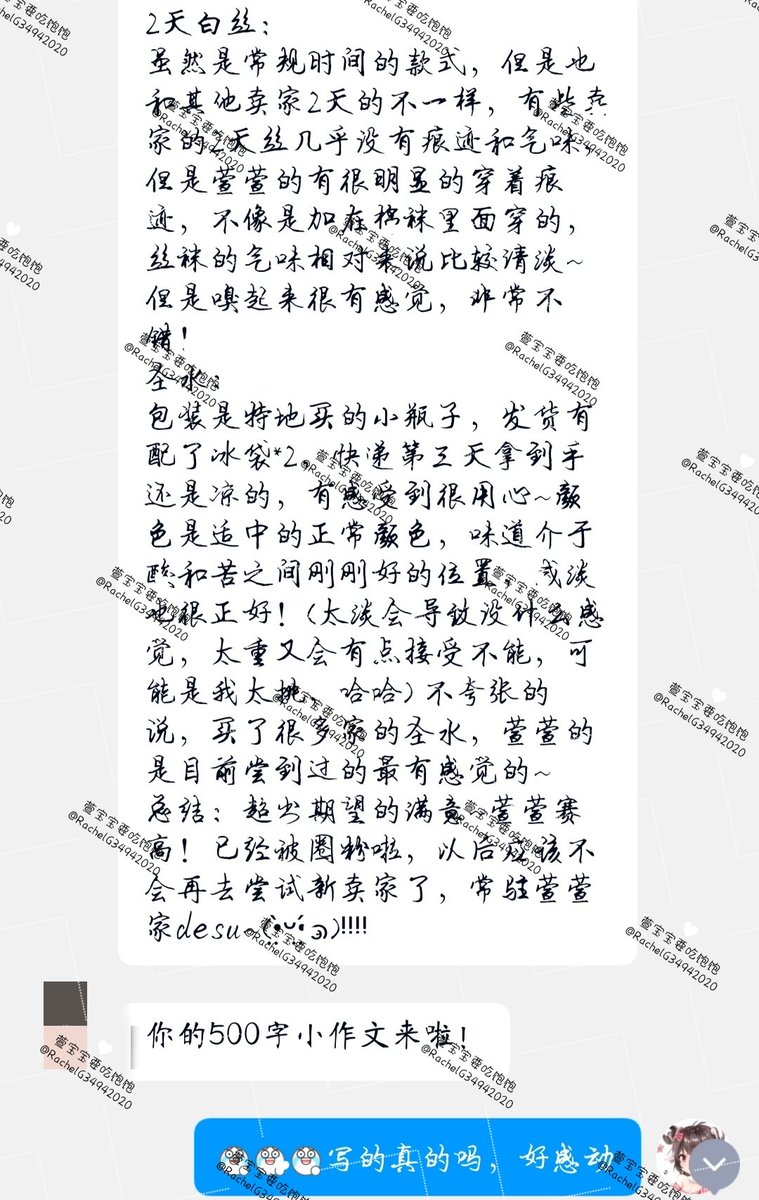 2天白丝：
虽然是常规时间的款式，但是也
和其他卖家2天的不一样，有些卖
家的2天丝几乎没有痕迹和气味，
但是萱萱的有很明显的穿着痕
迹，不像是加在棉袜里面穿的，
丝袜的气味相对来说比较清淡~
但是嗅起来很有感觉，非常不
错！
圣水：
包装是特地买的小瓶子，发货有
配了冰袋*2。快递第三天拿到手
还是凉的，有感受到很用心~颜
色是适中的正常颜色，味道介于
酸和苦之间刚刚好的位置，咸淡
也很正好！(太淡会导致没什么感
觉，太重又会有点接受不能，可
能是我太挑，哈哈)不夸张的
说，买了很多家的圣水，萱萱的
是目前尝到过的最有感觉的~
总结：超出期望的满意，萱萱赛
高！已经被圈粉啦，以后应该不
会再去尝试新卖家了，常驻萱萱
家desu~
你的500字小作文来啦！
写的真的吗，好感动
萱宝宝要吃饱饱
@RachelG34942020